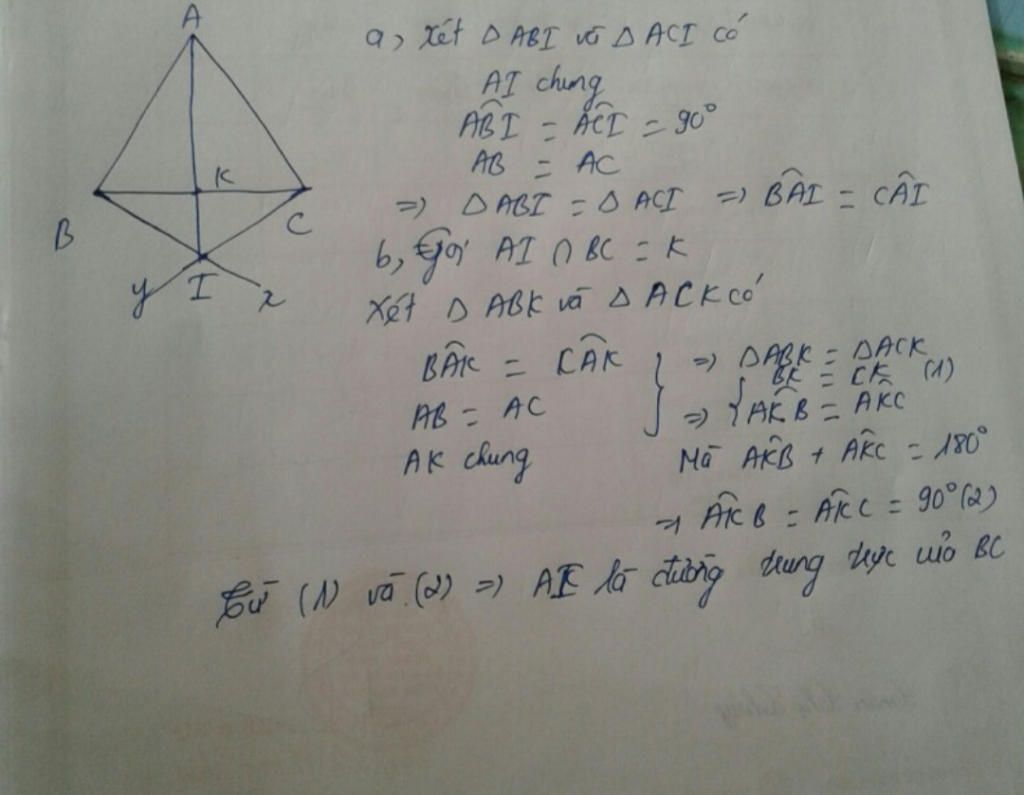 A
K
B
C
y
I
x
a, Xét Δ ABI và Δ ACI có
AI chung
ABI = ACI = 90°
AB = AC
=> Δ ABI = Δ ACI => BAI = CAI
b, Gọi AI ∩ BC = K
Xét Δ ABK và Δ ACK có
BAK = CAK
AB = AC
AK chung
=> ΔABK = ΔACK
=> { BK = CK (1)
AKB = AKC
Mà AKB + AKC = 180°
=> AKB = AKC = 90° (2)
Từ (1) và (2) => AI là đường trung trực của BC